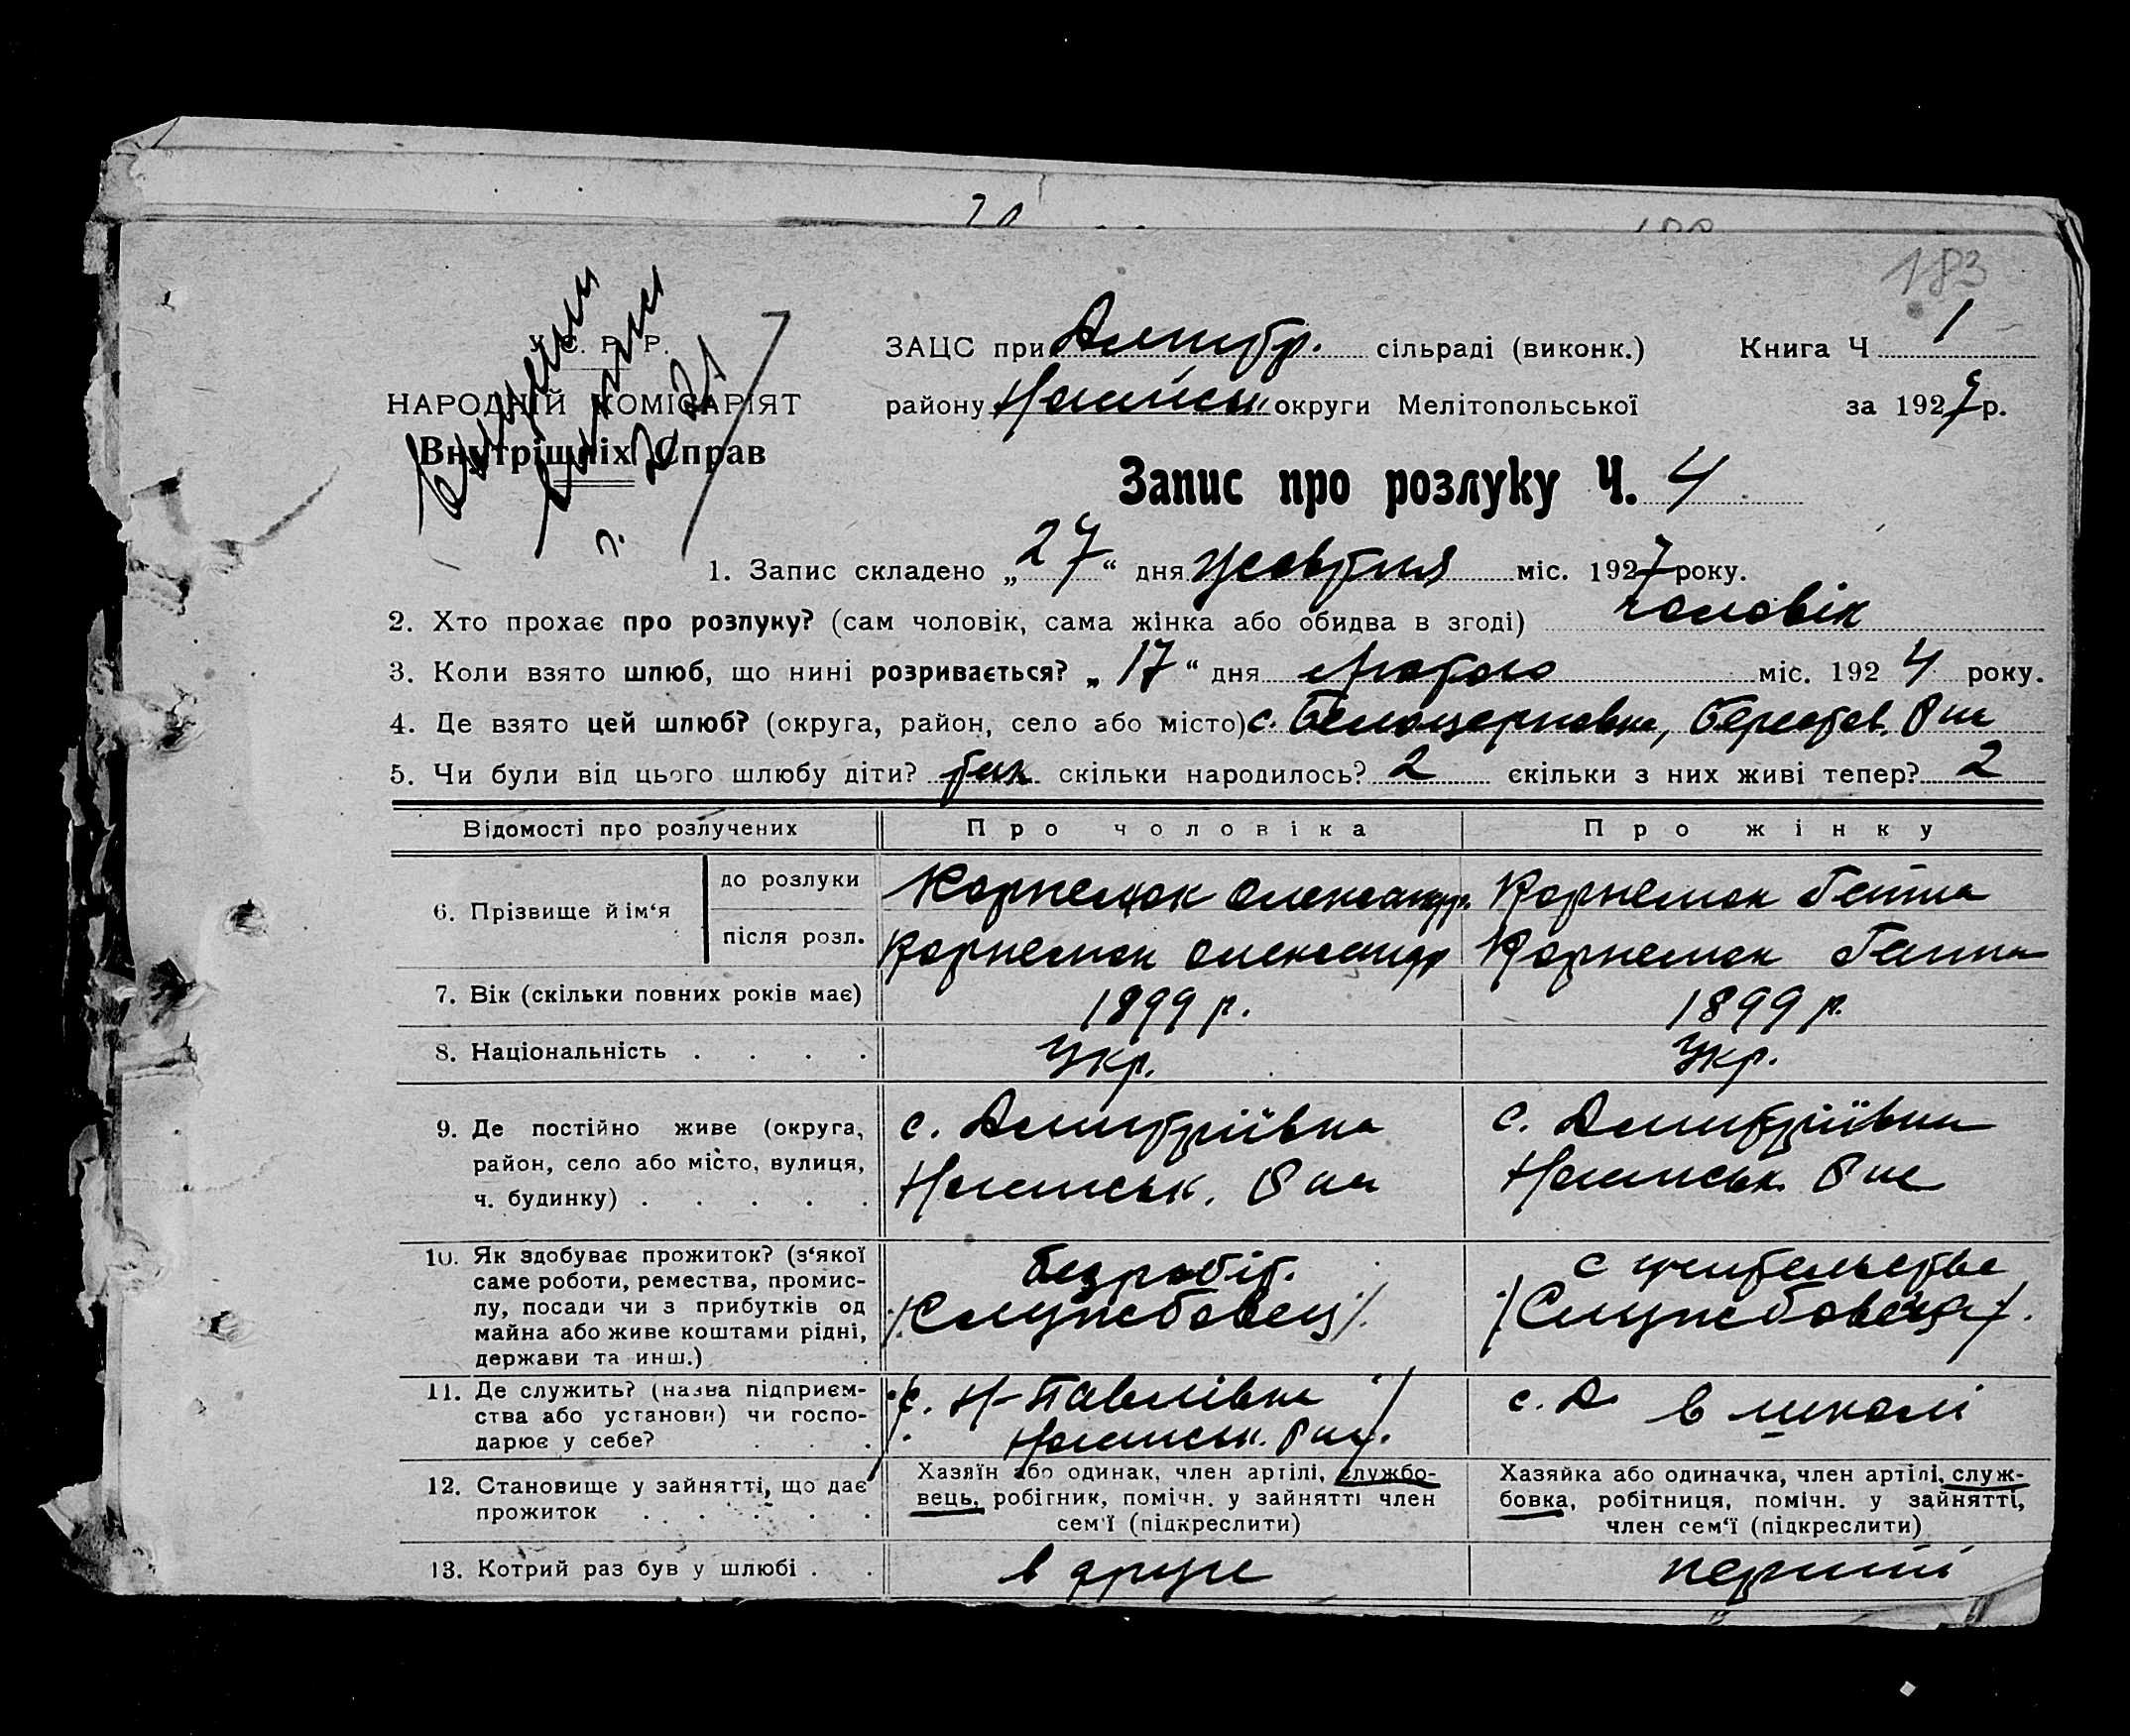 183
У. С. Р. Р.
НАРОДНІЙ КОМІСАРІЯТ
Внутрішніх Справ
ЗАЦС при Дмитр. сільраді (виконк.) Книга Ч 1
району округи Мелітопольської за 1927 р.
Запис про розлуку Ч. 4
1. Запис складено „27“ дня жовтня міс. 1927 року.
2. Хто прохає про розлуку? (сам чоловік, сама жінка або обидва в згоді) чоловік
3. Коли взято шлюб, що нині розривається? „17“ дня лютого міс. 1924 року.
4. Де взято цей шлюб? (округа, район, село або місто) с. Белоцерковка, Берестов. Рна
5. Чи були від цього шлюбу діти? так скільки народилось? 2 скільки з них живі тепер? 2
Відомості про розлучених Про чоловіка Про жінку
6. Прізвище й ім‘я
до розлуки Корнелюк Олександр. Корнелюк Ганна
після розл. Корнелюк Олександр Корнелюк Ганна
7. Вік (скільки повних років має) 1899 р. 1899 р.
8. Національність . . . . Укр. Укр.
9. Де постійно живе (округа, с. Дмитріївка с. Дмитріївка
район, село або місто, вулиця, Рна Рна
ч. будинку) . . . . .
10. Як здобуває прожиток? (з‘якої безробіт. с учительства
саме роботи, ремества, промис- /Службовець/. /Службовеця/.
лу, посади чи з прибутків од
майна або живе коштами рідні,
держави та инш.) .
11. Де служить? (назва підприєм- с. Н-Павлівка с. Д в школі
ства або установи) чи госпо- Рну.
дарює у себе? . . .
12. Становище у зайнятті, що дає
прожиток . . . . . .
Хазяїн або одинак, член артілі, службо-
вець, робітник, помічн. у зайнятті член
сем‘ї (підкреслити)
Хазяйка або одиначка, член артілі, служ-
бовка, робітниця, помічн. у зайнятті,
член сем‘ї (підкреслити)
13. Котрий раз був у шлюбі . . в друге перший